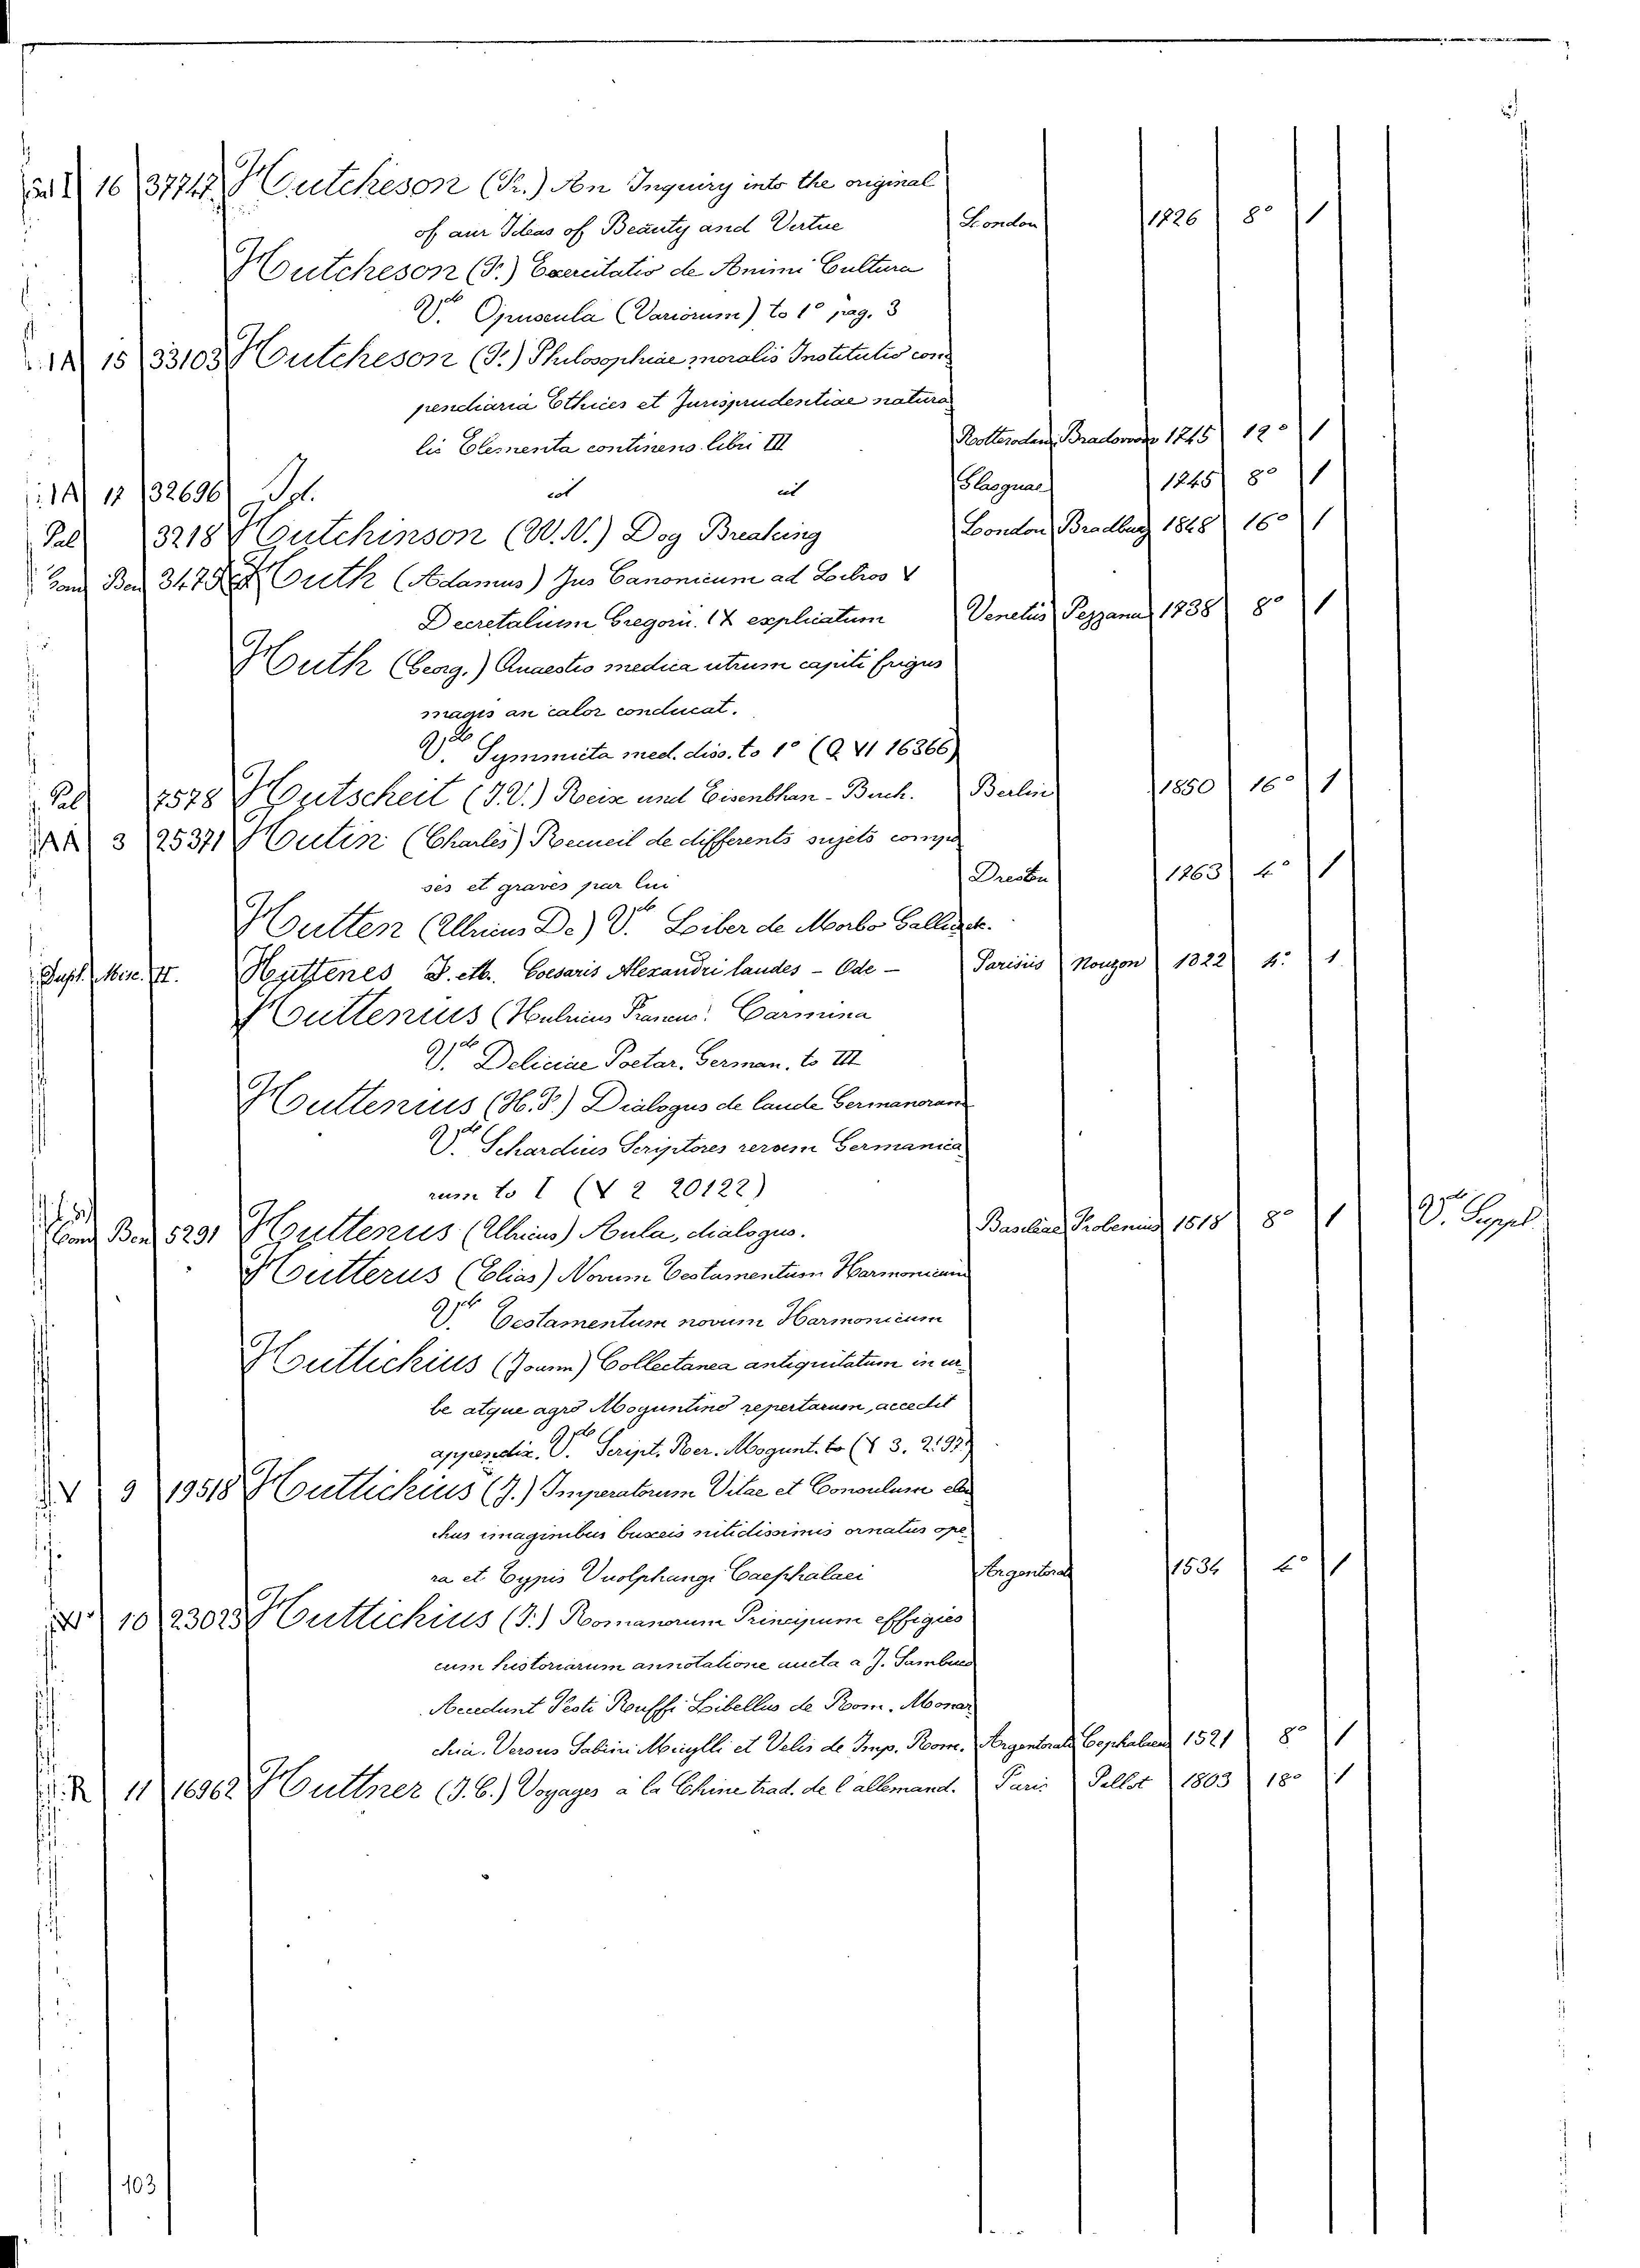 16 37747 Hutcheson (Fr.) An Inquiry into the original
of aur Ideas of Beauty and Vertue London 1726 8° 1
Hutcheson (F.) Exercitatio de Animi Cultura
V.de Opuscula (Variorum) to 1° pag. 3
14 15 33103 Hutcheson (F.) Philosophiae moralis Institutio com
pendiaria Ethices et Jurisprudentiae natura
lis Elementa continens libri III Rotterodam 1745 12° 1
14 17 32696 Id. id id Glasguae 1745 8° 1
Pal 3218 Hutchinson (W. N.) Dog Breaking London Bradbury 1848 16° 1
Cond Ben 3478 Huth (Adamus) Jus Canonicum ad Libros V
Decretalium Gregorii IX explicatum Venetiis Pezzana 1738 8° 1
Huth (Georg.) Quaestio medica utrum capiti frigus
magis an calor conducat.
V.de Symmicta med. diss. to 1° (Q VI 16366)
Pal 7578 Hutscheit (J. V.) Reise und Eisenbhan-Buch. Berlin 1850 16° 1
3 25371 Hutin (Charles) Recueil de differents sujets compo
sés et gravés par lui Dresden 1763 4° 1
Hutten (Ulricus De) V.de Liber de Morbo Gallico
Supl. Misc. II. Huttenes J. etc. Coesaris Alexandri laudes - Ode - Parisiis Nouzon 1822 4° 1
Huttenius (Hulricus Francus) Carmina
V.de Deliciae Poetar. German. to III
Huttenius (H. F.) Dialogus de laude Germanorum
V.de Schardius Scriptores rerum Germanica
rum to I (V 2 20122)
Cond Ben 5291 Huttenus (Ulricus) Aula, dialogus. Basileae Frobenius 1518 8° 1 V.de Suppl.
Hutterus (Elias) Novum Testamentum Harmonicum
V.de Testamentum novum Harmonicum
Huttichius (Joann) Collectanea antiquitatum in ur
be atque agro Moguntino repertarum, accedit
appendix. V.de Script. Rer. Mogunt. to (V 3. 2197)
V 9 19518 Huttichius (J.) Imperatorum Vitae et Consulum elen
chus imaginibus buxeis nitidissimis ornatus ope
ra et Typis Vuolphangi Caephalaei Argentorat 1534 4° 1
10 23023 Huttichius (J.) Romanorum Principum effigies
cum historiarum annotatione aucta a J. Sambuco
Accedunt Festi Rouffi Libellus de Rom. Monar
chia. Verous Sabini Meiylli et Velis de Imp. Rom. Argentorati Cephaleus 1521 8° 1
R 11 16962 Huttner (J. C.) Voyages à la Chine trad. de l'allemand. Paris Pillot 1803 18° 1
103